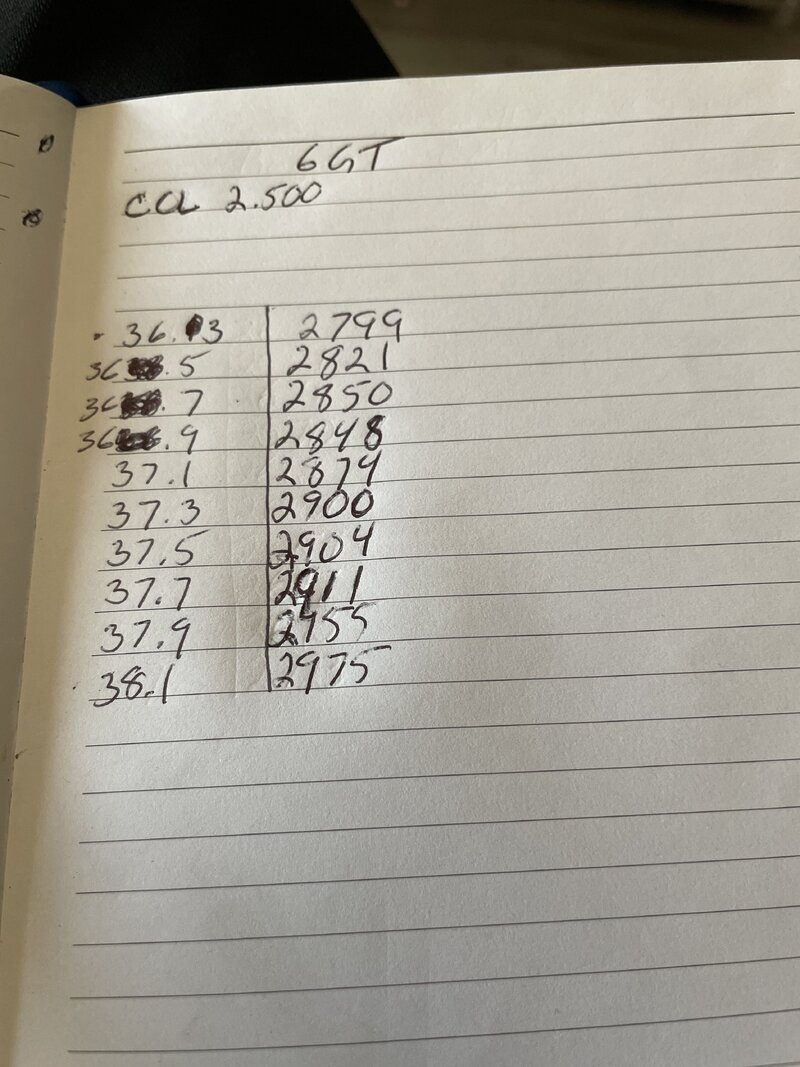 6GT
COL 2.500
36.3 2799
36.5 2821
36.7 2850
36.9 2848
37.1 2874
37.3 2900
37.5 2904
37.7 2911
37.9 2955
38.1 2975